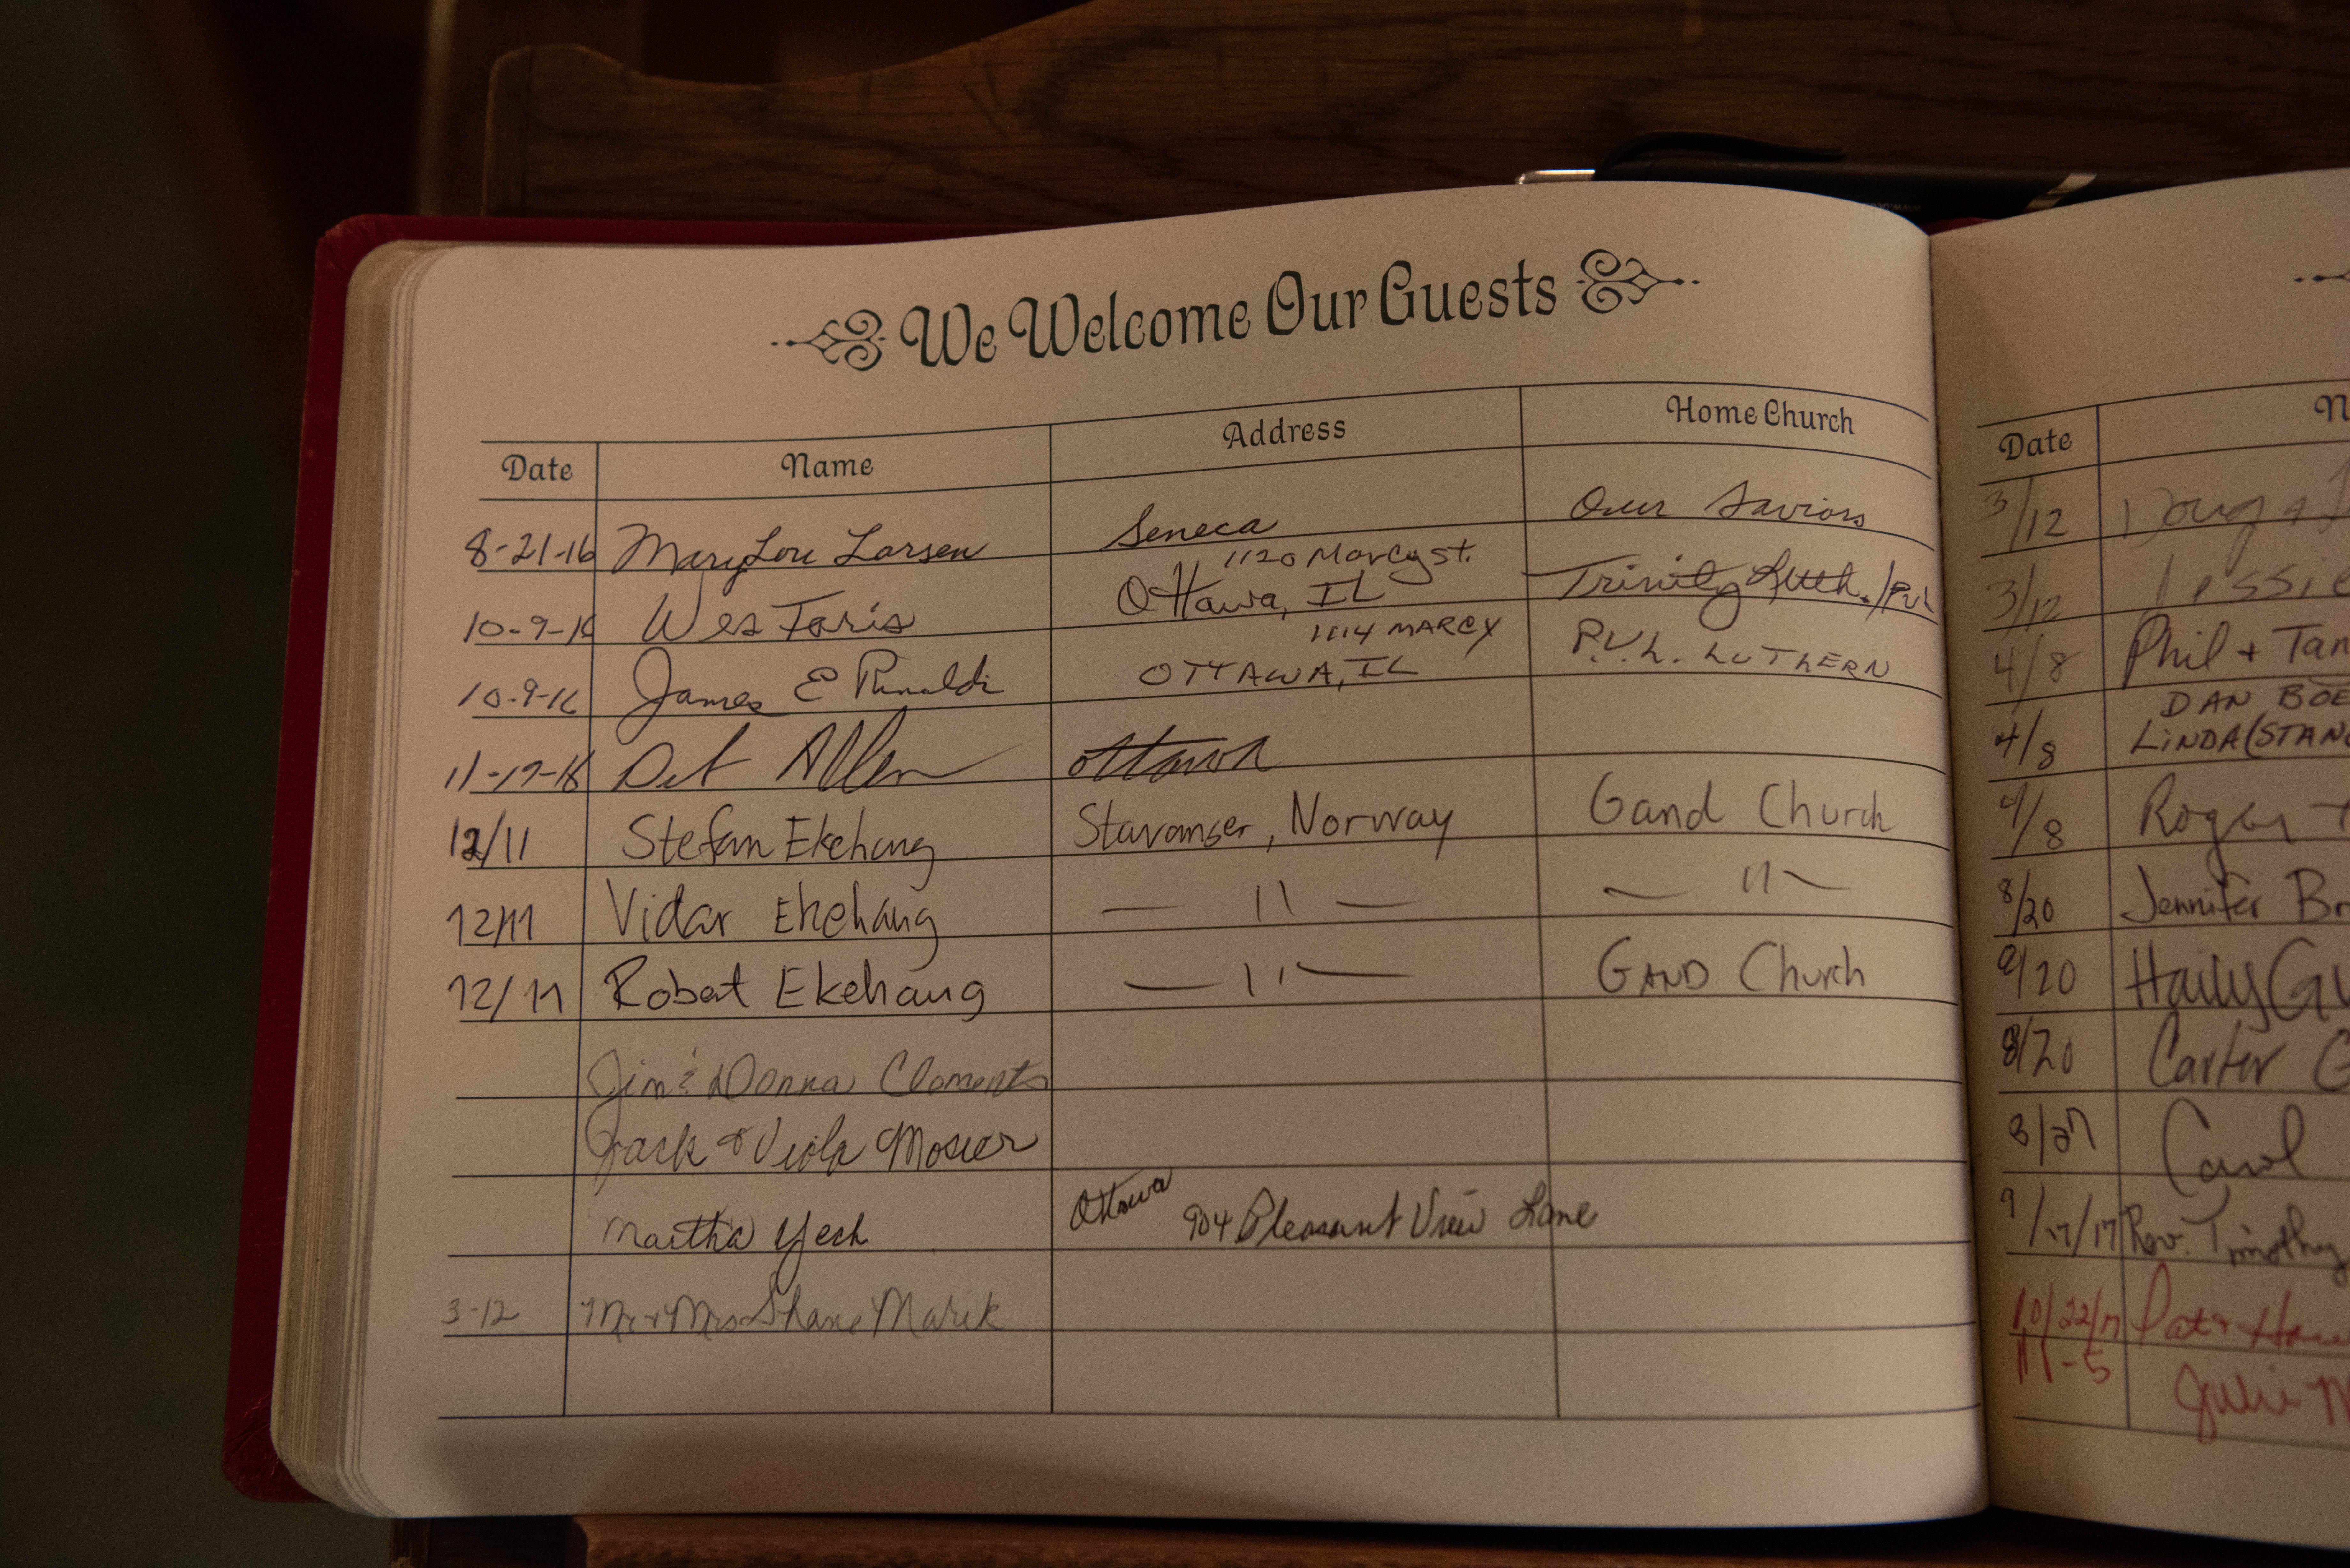 We Welcome Our Guests
Date Name Address Home Church
8-21-16 Mary Lou Larsen Seneca Our Saviors
1120 Marcy st.
10-9-16 Wes Faris Ottawa, IL Trinity Luth. /
1114 MARCY
10-9-16 James E Rinaldi OTTAWA, IL P.V.L. LUTHERN
Allen Ottawa
12/11 Stefan Ekehaug Stavanger, Norway Gand Church
12/11 Vidar Ekehaug — 11 — — 11 —
12/11 Robert Ekehaug — 11 — GAND Church
Jim & Donna Clements
Jack & Viola Mosier
Martha Yech Ottawa 904 Pleasant View Lane
3-12 Mr & Mrs Shane Marik
Date
3/12 Doug &
3/12 Jessie
4/8 Phil + Tan
DAN BOE
4/8 LINDA (STAN
4/8 Roger
8/20 Jennifer Br
8/20 Haily Gu
8/20 Carter G
8/27 Carol
9/17/17 Rev. Timothy
10/22/17 Pat &
11-5 Julie